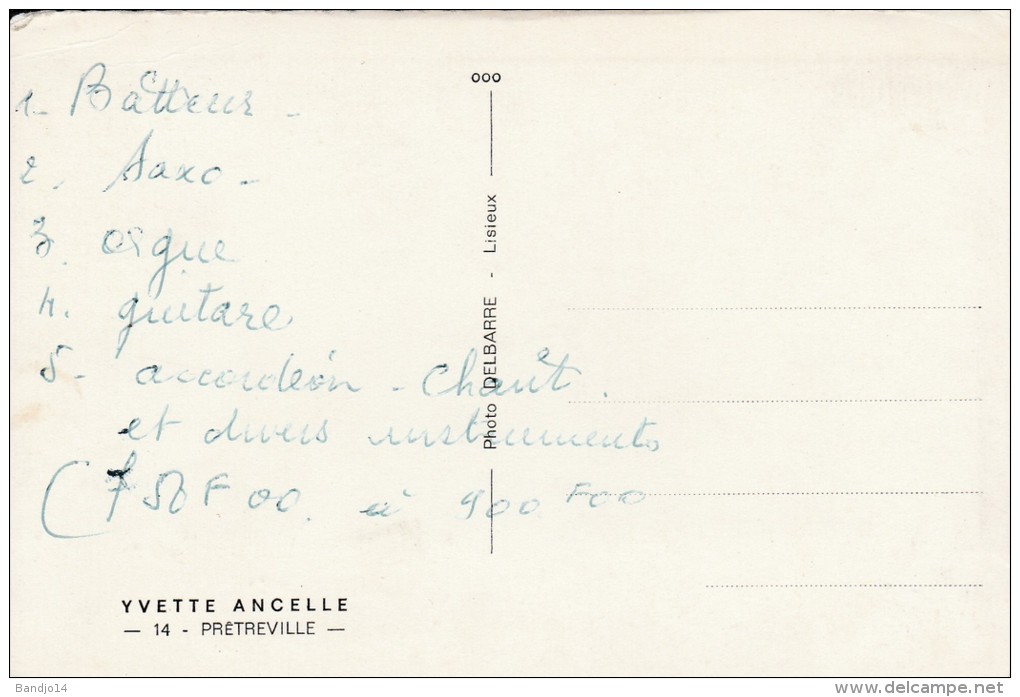 1- Batteur -
2. Saxo -
3. orgue
4. guitare
5- accordéon - Chant.
et divers instruments
(750 F 00. à 900 F 00
YVETTE ANCELLE
— 14 - PRÊTREVILLE —
ooo
Photo DELBARRE - Lisieux
Bandjo14
www.delcampe.net